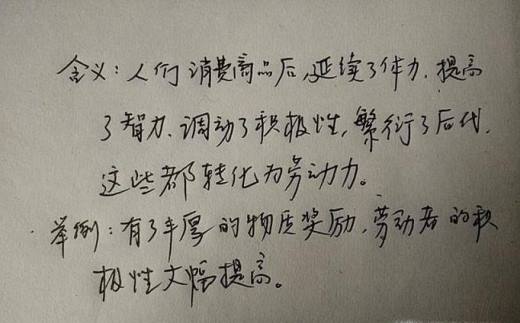 含义：人们消费商品后，延续了体力，提高
了智力，调动了积极性，繁衍了后代，
这些都转化为劳动力。
举例：有了丰厚的物质奖励，劳动者的积
极性大幅提高。